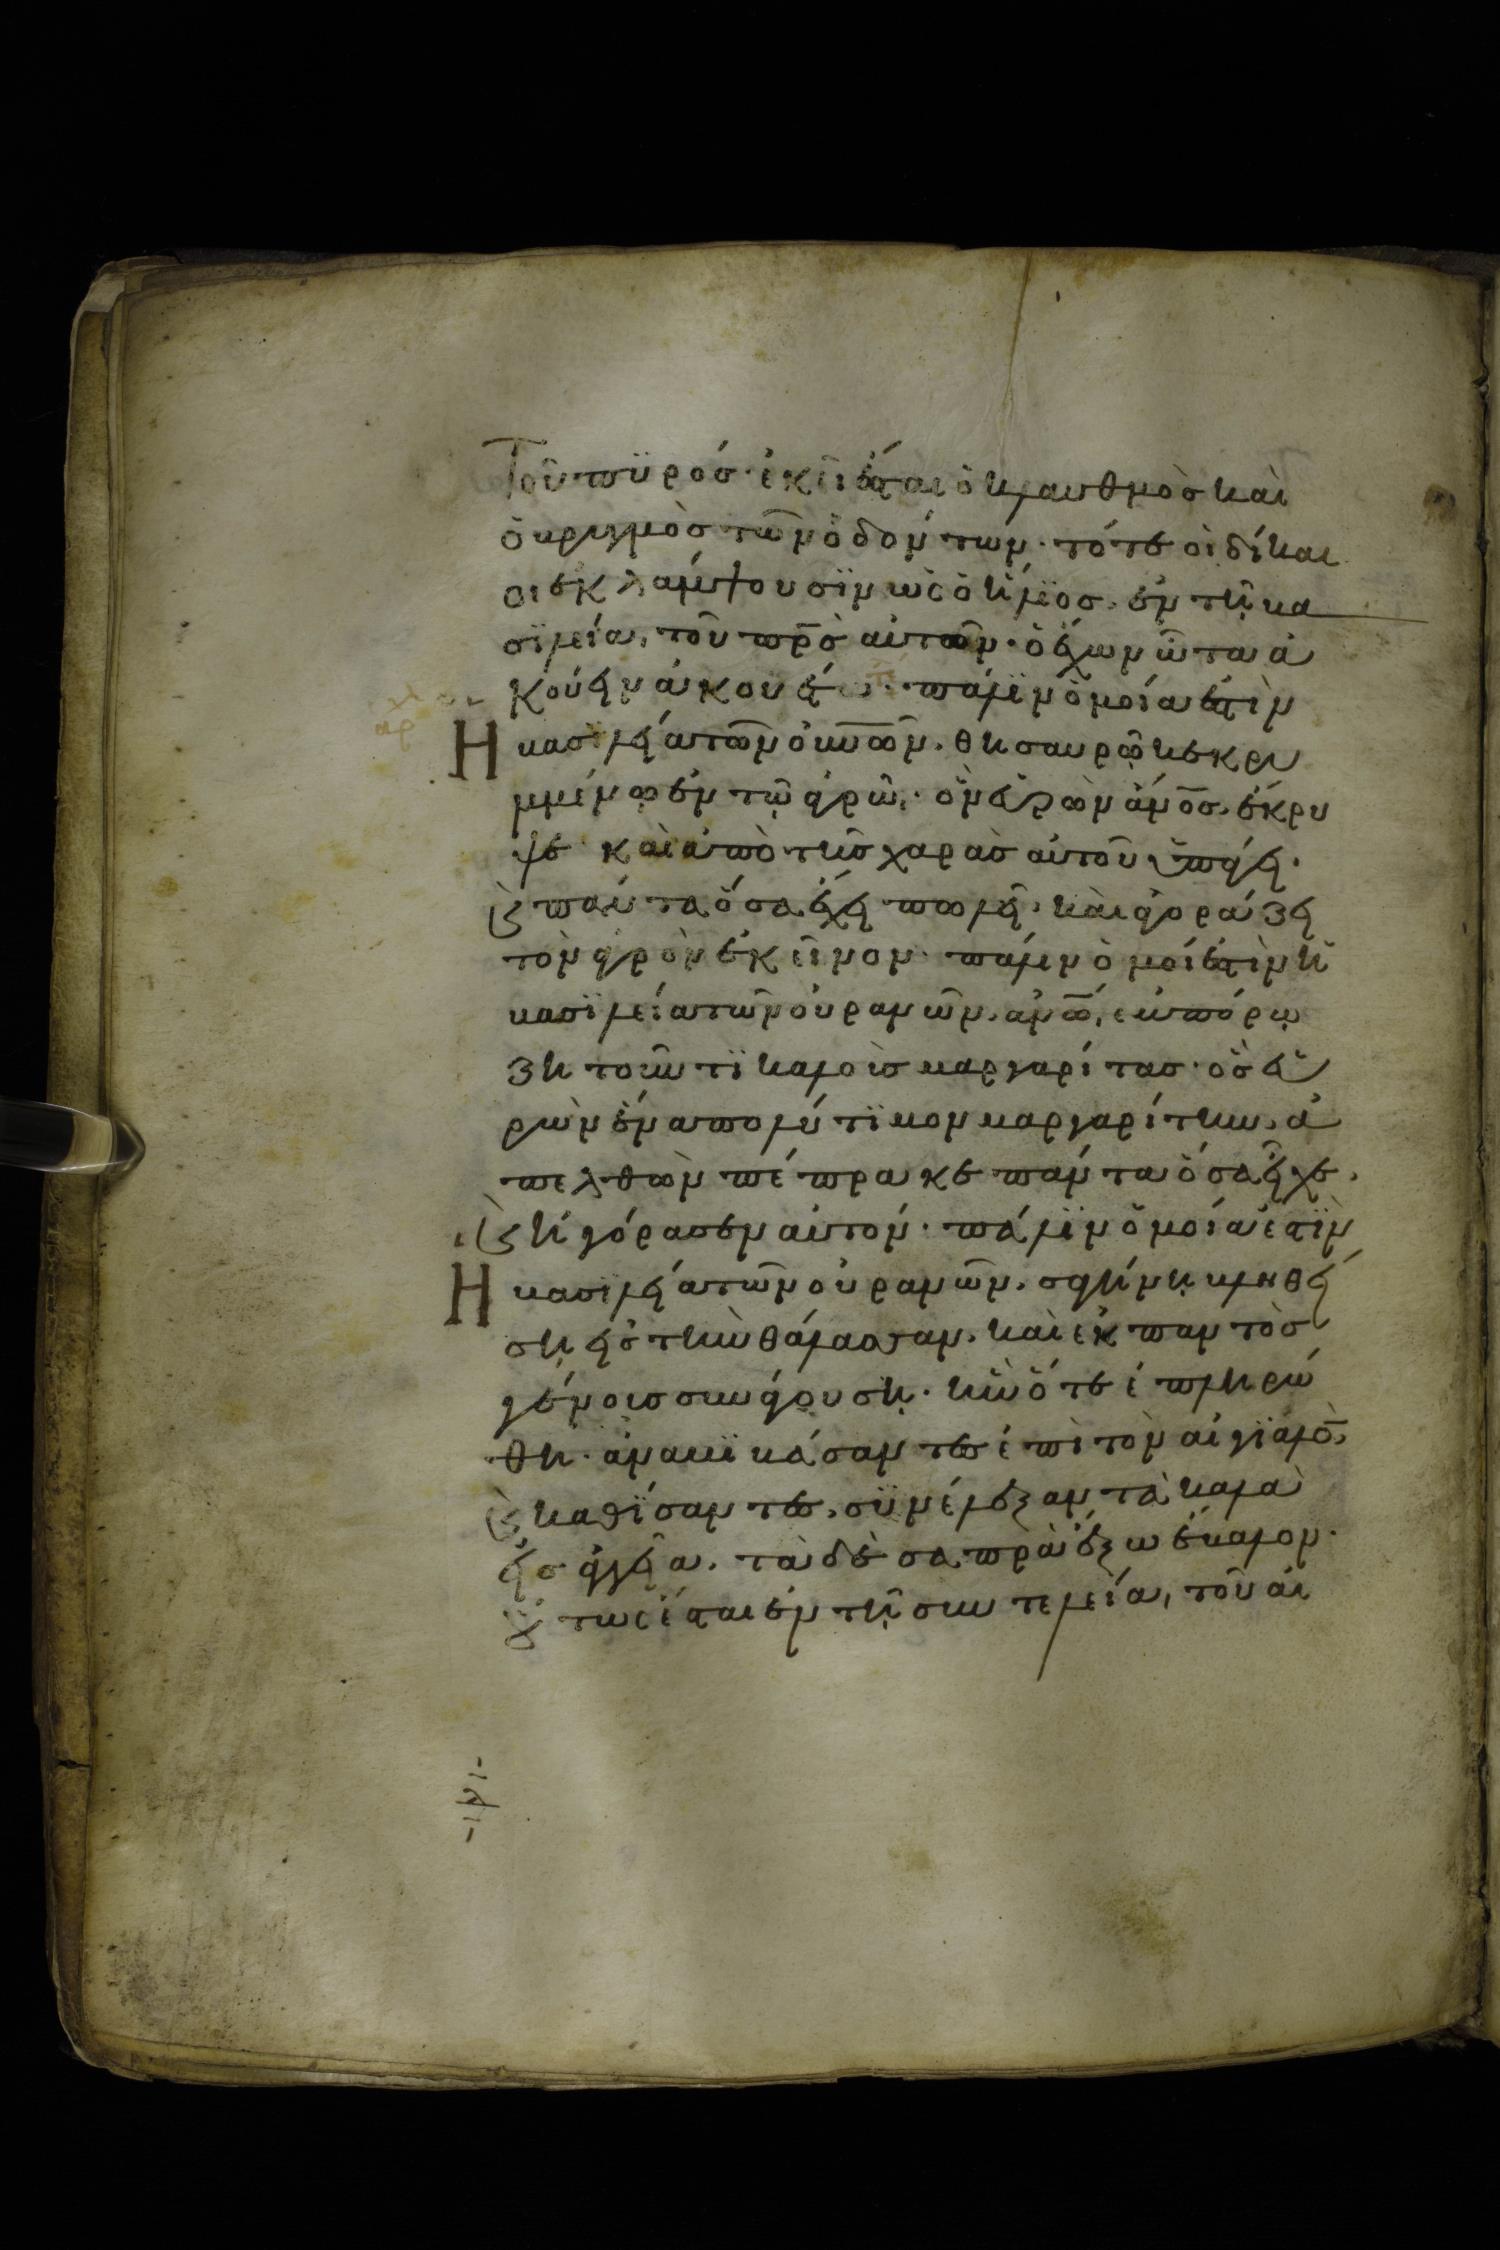 Τοῦ πϋρόσ· ἐκεῖ ἔσται ὁ κλαυθμὸσ καὶ
ὁ βρυγμὸσ τῶν ὀδόντων· τότε οἱ δίκαι
οι ἐκλάμψουσϊν ὡς ὁ ἥλϊοσ, ἐν τῆ βα
σϊλεία, τοῦ πρ̅σ̅ αὐτῶν· ὁ ἔχων ὦτα ἀ
κούειν ἀκουέτω· πάλϊν ὁμοία ἐστὶν
Ἡ βασϊλεία τῶν οὐν̅ῶν, θησαυρῶ κεκρυ
μμένω ἐν τῶ ἀγρῶ, ὃν εὑρὼν ἄν̅ο̅σ̅, ἔκρυ
ψε καὶ ἀπὸ τῆσ χαρὰσ αὐτοῦ ὑπάγει·
ϗ πάντα ὅσα ἔχει πωλεῖ, καὶ ἀγοράζει
τὸν ἀγρὸν ἐκεῖνον· πάλιν ὁμοί ἐστὶν ἡ
βασϊλεία τῶν οὐρανῶν, ἀν̅ω̅, ἐμπόρω
ζητοῦντϊ καλοὺσ μαργαρίτασ· ὃσ εὑ
ρὼν ἕνα πολύτϊμον μαργαρίτην, ἀ
πελθὼν πέπρακε πάντα ὅσα εἶχε,
ϗ ἠγόρασεν αὐτόν· πάλϊν ὁμοία ἐστϊν
Ἡ βασϊλεία τῶν οὐρανῶν, σαγήνη βληθεί
ση εἰσ τὴν θάλασσαν, καὶ ἐκ παντὸσ
γένουσ συναγούση· ἣν ὅτε ἐπληρώ
θη· ἀναβϊβάσαντεσ ἐπὶ τὸν αἰγϊαλὸ̅,
ϗ καθϊσαντεσ, συνέλεξαν τὰ καλὰ
εἰσ ἀγγεῖα, τὰ δὲ σαπρὰ ἔξω ἔβαλον·
οὕτως ἔσται ἐν τῆ συντελεία, τοῦ αἰ